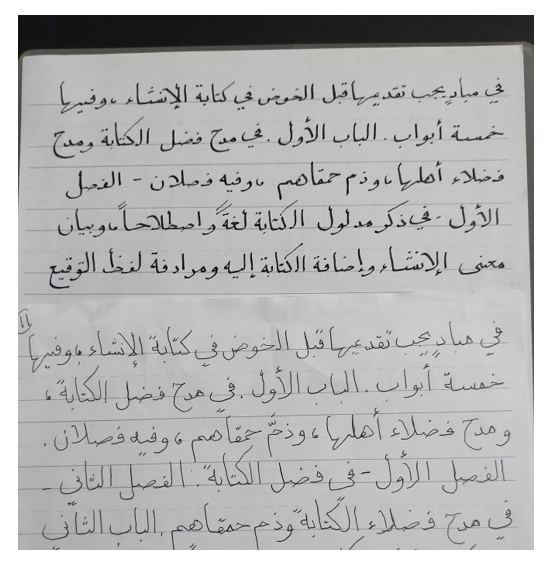 في مبادٍ يجب تقديمها قبل الخوض في كتابة الإنشاء، وفيها
خمسة أبواب. الباب الأول. في مدح فضل الكتابة ومدح
فضلاء أهلها، وذم حمقاهم، وفيه فصلان - الفصل
الأول - في ذكر مدلول الكتابة لغةً واصطلاحاً، وبيان
معنى الإنشاء وإضافة الكتابة إليه ومرادفة لفظ التوقيع
11
في مبادٍ يجب تقديمها قبل الخوض في كتابة الإنشاء، وفيها
خمسة أبواب. الباب الأول. في مدح فضل الكتابة،
ومدح فضلاء أهلها، وذمّ حمقاهم، وفيه فصلان.
الفصل الأول - في فضل الكتابة. الفصل الثاني -
في مدح فضلاء الكتابة وذم حمقاهم. الباب الثاني